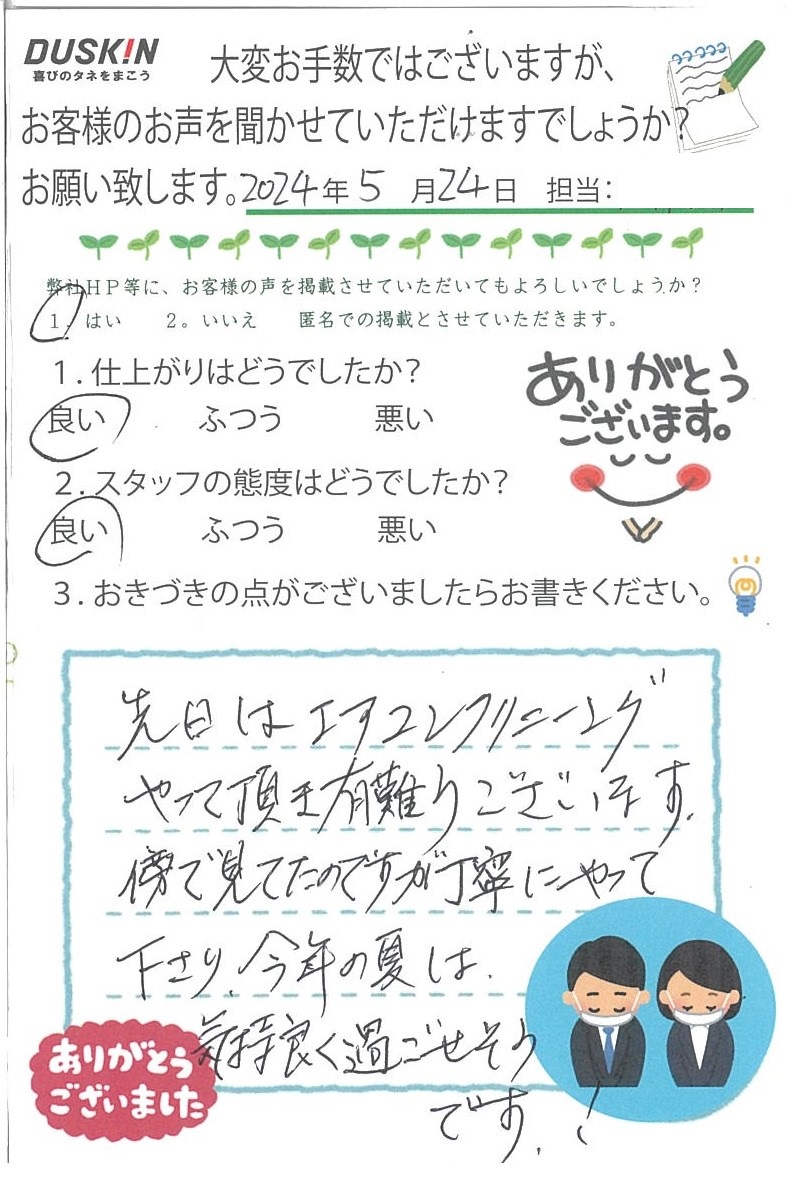 DUSKIN
喜びのタネをまこう
大変お手数ではございますが、
お客様のお声を聞かせていただけますでしょうか?
お願い致します。2024年5月24日 担当:
弊社HP等に、お客様の声を掲載させていただいてもよろしいでしょうか?
1. はい 2。いいえ 匿名での掲載とさせていただきます。
1.仕上がりはどうでしたか?
良い ふつう 悪い
ありがとう
ございます。
2.スタッフの態度はどうでしたか?
良い ふつう 悪い
3.おきづきの点がございましたらお書きください。
先日はエアコンクリーニング
やって頂き有難うございます。
傍で見てたのですが丁寧にやって
下さり、今年の夏は、
気持良く過ごせそう
です。!
ありがとう
ございました